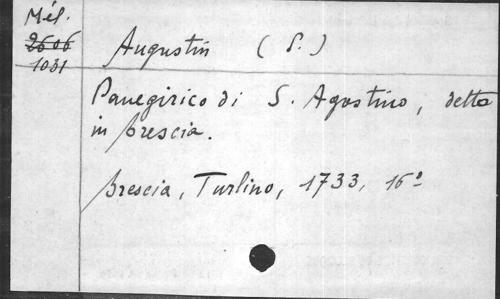 Mél.
2606
1031
Augustin (S.)
Panegirico di S. Agostino, detto
in Brescia.
Brescia, Turlino, 1733, 16º